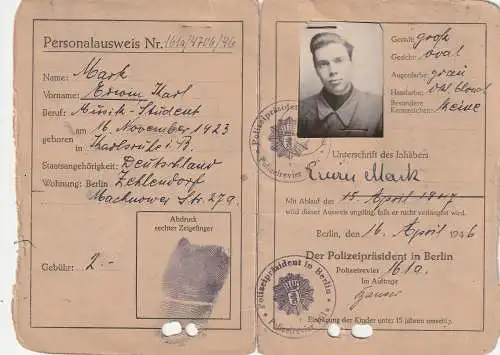 Personalausweis Nr. 161a/4706/46
Name: Mark
Vorname: Erwin Karl
Beruf: Musik-Student
am 16. November 1923
geboren
in Karlsruhe i. B.
Staatsangehörigkeit: Deutschland
Wohnung: Berlin Zehlendorf
Machnower Str. 27a.
Abdruck
rechter Zeigefinger
Gebühr: 2.-
Gestalt: groß
Gesicht: oval
Augenfarbe: grau
Haarfarbe: dkl. blond
Besondere
Kennzeichen: keine
Polizeipräsident
Polizeirevier
Unterschrift des Inhabers
Erwin Mark
Mit Ablauf des 15. April 1947
wird dieser Ausweis ungültig, falls er nicht verlängert wird.
Berlin, den 16. April 1946
Der Polizeipräsident in Berlin
Polizeirevier 161a.
Im Auftrage
Polizeipräsident in Berlin
Polizeirevier
Eintragung der Kinder unter 15 Jahren umseitig.